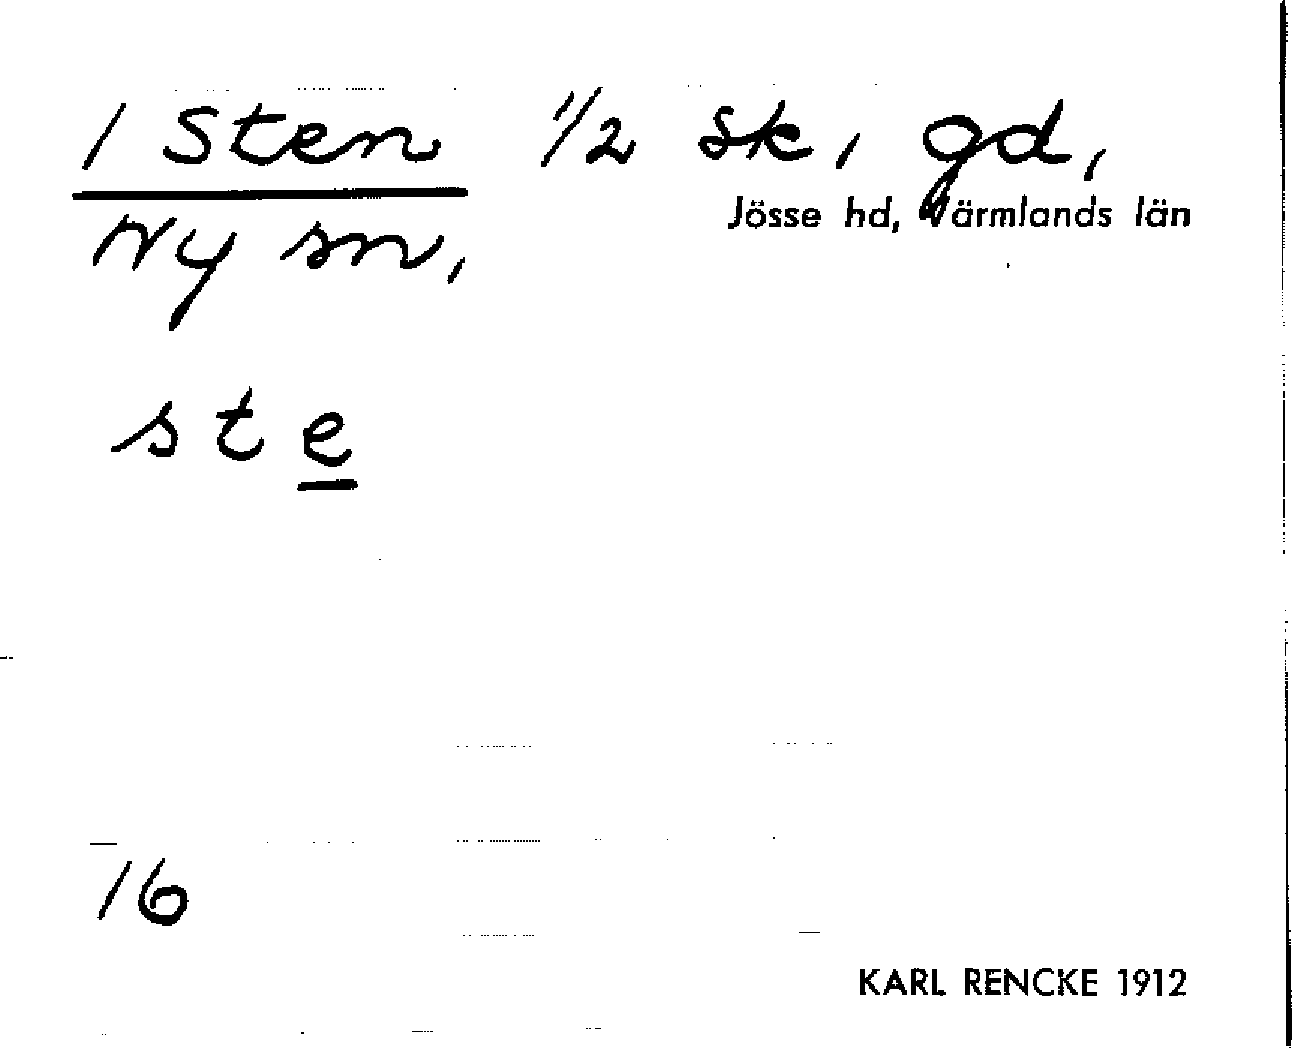 1 Sten 1/2 sk, gd,
Jösse hd, Värmlands län
Ny sn,
ste
16
KARL RENCKE 1912